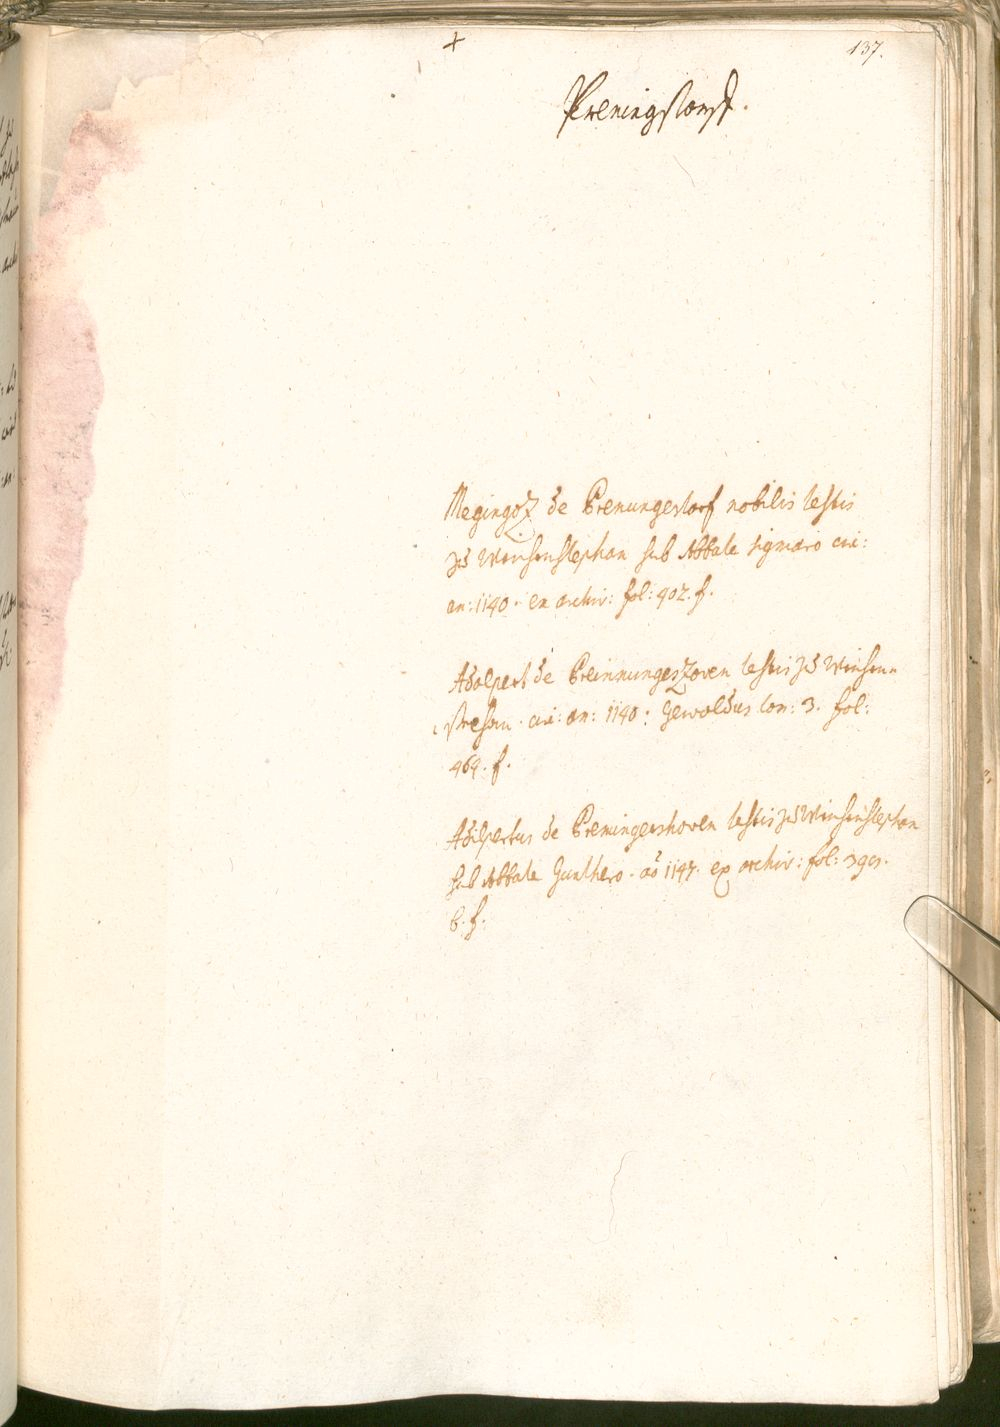 +
137.
Preningstorff.
Megingoz de Prenungestorf nobilis testis
zu Weichenstephan sub Abbate Sigmaro cir:
an: 1140. ex archiv: fol: 402. f.
Adalpert de Preinnungeszoven testis zu Weichen-
stephan. cir: an: 1140: Gewoldus tom: 3. fol:
464. f.
Adilpertus de Premingershoven testis zu Weichenstephan
sub Abbate Gunthero. ao 1147. ex archiv: fol: 390.
b. f.